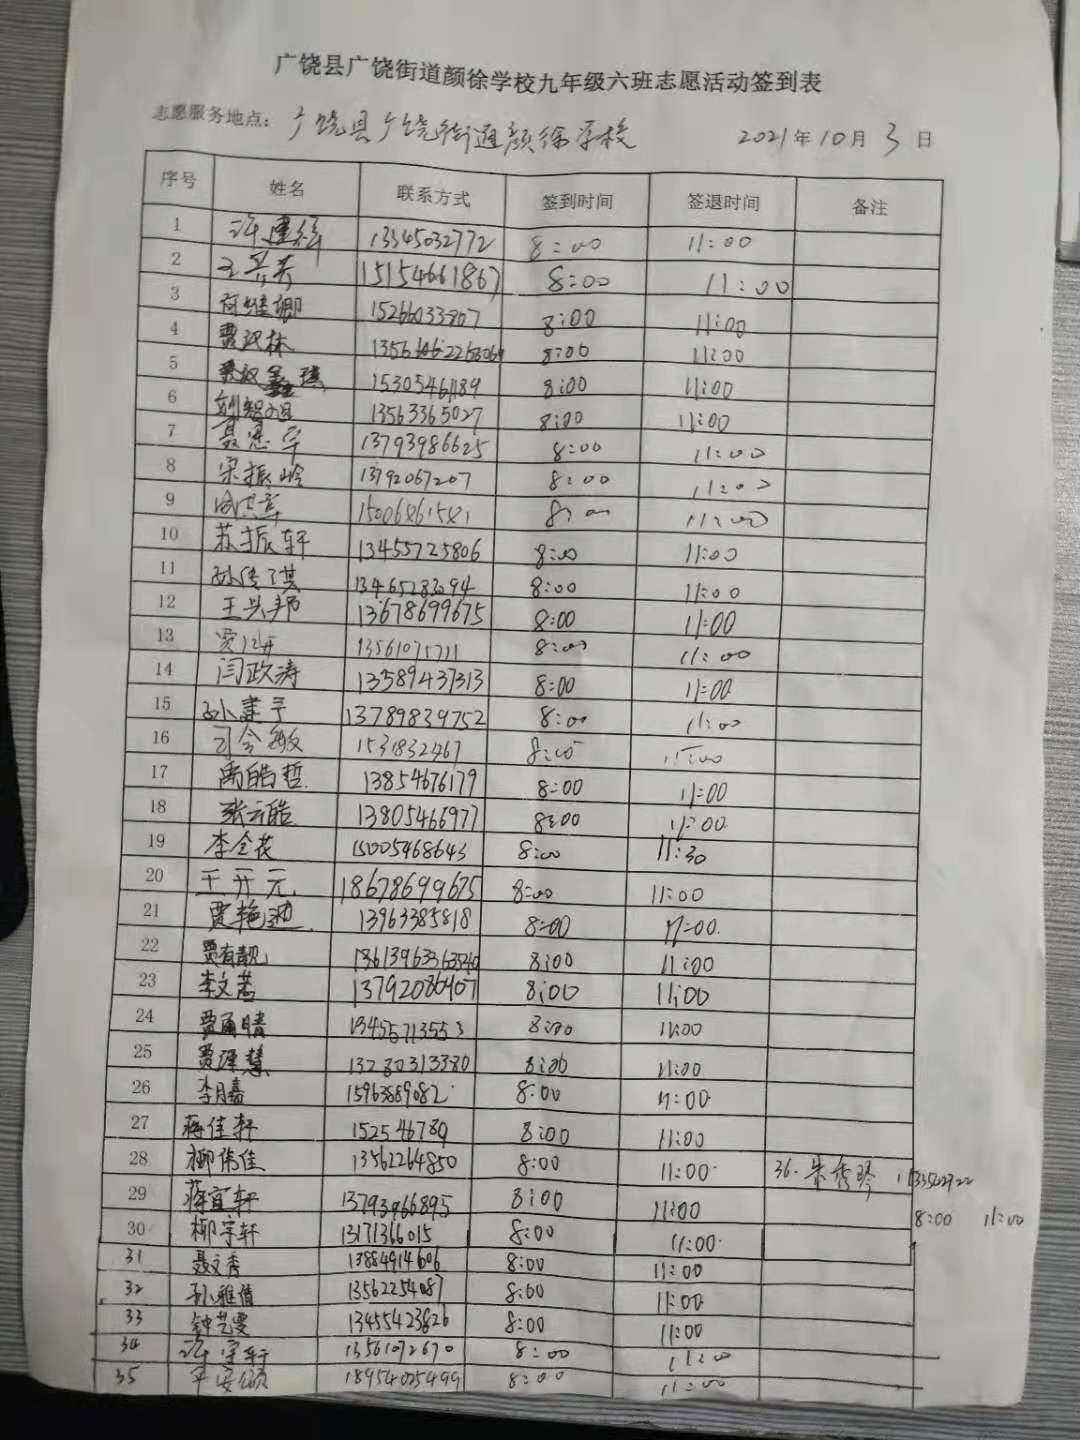 广饶县广饶街道颜徐学校九年级六班志愿活动签到表
志愿服务地点： 广饶县广饶街道颜徐学校 2021年10月3日
序号 姓名 联系方式 签到时间 签退时间 备注
1 许建 13345032772 8:00 11:00
2 15154661867 8:00 11:00
3 15266033807 8:00 11:00
4 贾 8:00 11:00
5 8:00 11:00
6 13563365027 8:00 11:00
7 聂恩宇 13793986625 8:00 11:00
8 宋振岭 13792067207 8:00 11:00
9 8:00 11:00
10 苏振轩 13455725806 8:00 11:00
11 孙传淇 13465283094 8:00 11:00
12 王兴邦 13678699675 8:00 11:00
13 贾 13561075711 8:00 11:00
14 闫政涛 13589437313 8:00 11:00
15 孙建宇 13789839752 8:00 11:00
16 司令 1531832467 8:00
17 禹皓哲 13854676179 8:00 11:00
18 张云皓 13805466977 8:00 11:00
19 李全 15005468643 8:00 11:30
20 王开元 18678699675 8:00 11:00
21 贾艳 13963385818 8:00 11:00
22 贾有靓 8:00 11:00
23 李文茜 13792086407 8:00 11:00
24 贾雨晴 13455713553 8:00 11:00
25 贾 13280313380 8:00 11:00
26 李月 15963889082 8:00 11:00
27 蒋佳轩 152546789 8:00 11:00
28 柳伟佳 13562264850 8:00 11:00 36. 朱秀琴
29 蒋宜轩 13793866895 8:00 11:00 8:00 11:00
30 柳宇轩 13171366015 8:00 11:00
31 聂文秀 13884914606 8:00 11:00
32 孙雅倩 13562254087 8:00 11:00
33 钟艺雯 13455423826 8:00 11:00
34 许宝轩 13561072670 8:00 11:00
35 18954025499 8:00 11:00